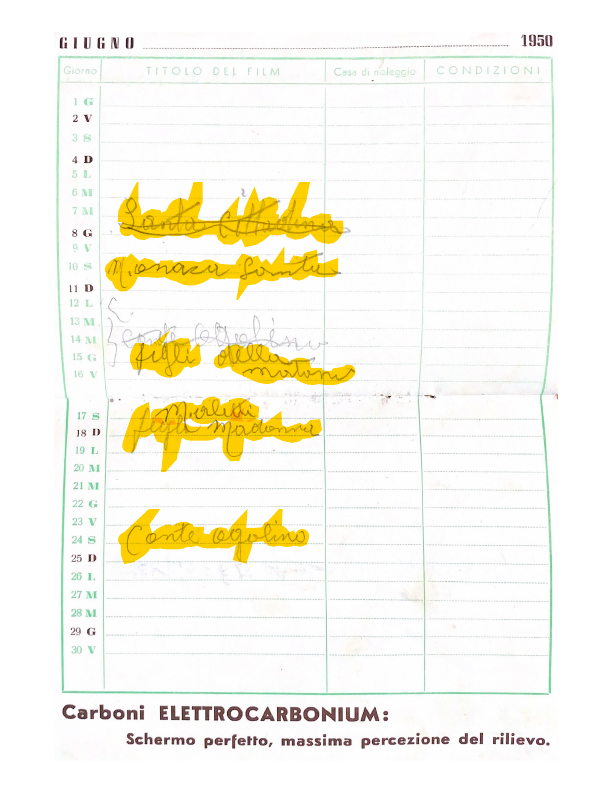 GIUGNO 1950
Giorno TITOLO DEL FILM Casa di noleggio CONDIZIONI
1 G
2 V
3 S
4 D
5 L
6 M
7 M Santa
8 G
9 V
10 S Monaca Santa
11 D
12 L
13 M
14 M conte
15 G figli della
16 V
17 S
18 D figli Madonna
19 L
20 M
21 M
22 G
23 V
24 S Conte ogolino
25 D
26 L
27 M
28 M
29 G
30 V
Carboni ELETTROCARBONIUM:
Schermo perfetto, massima percezione del rilievo.